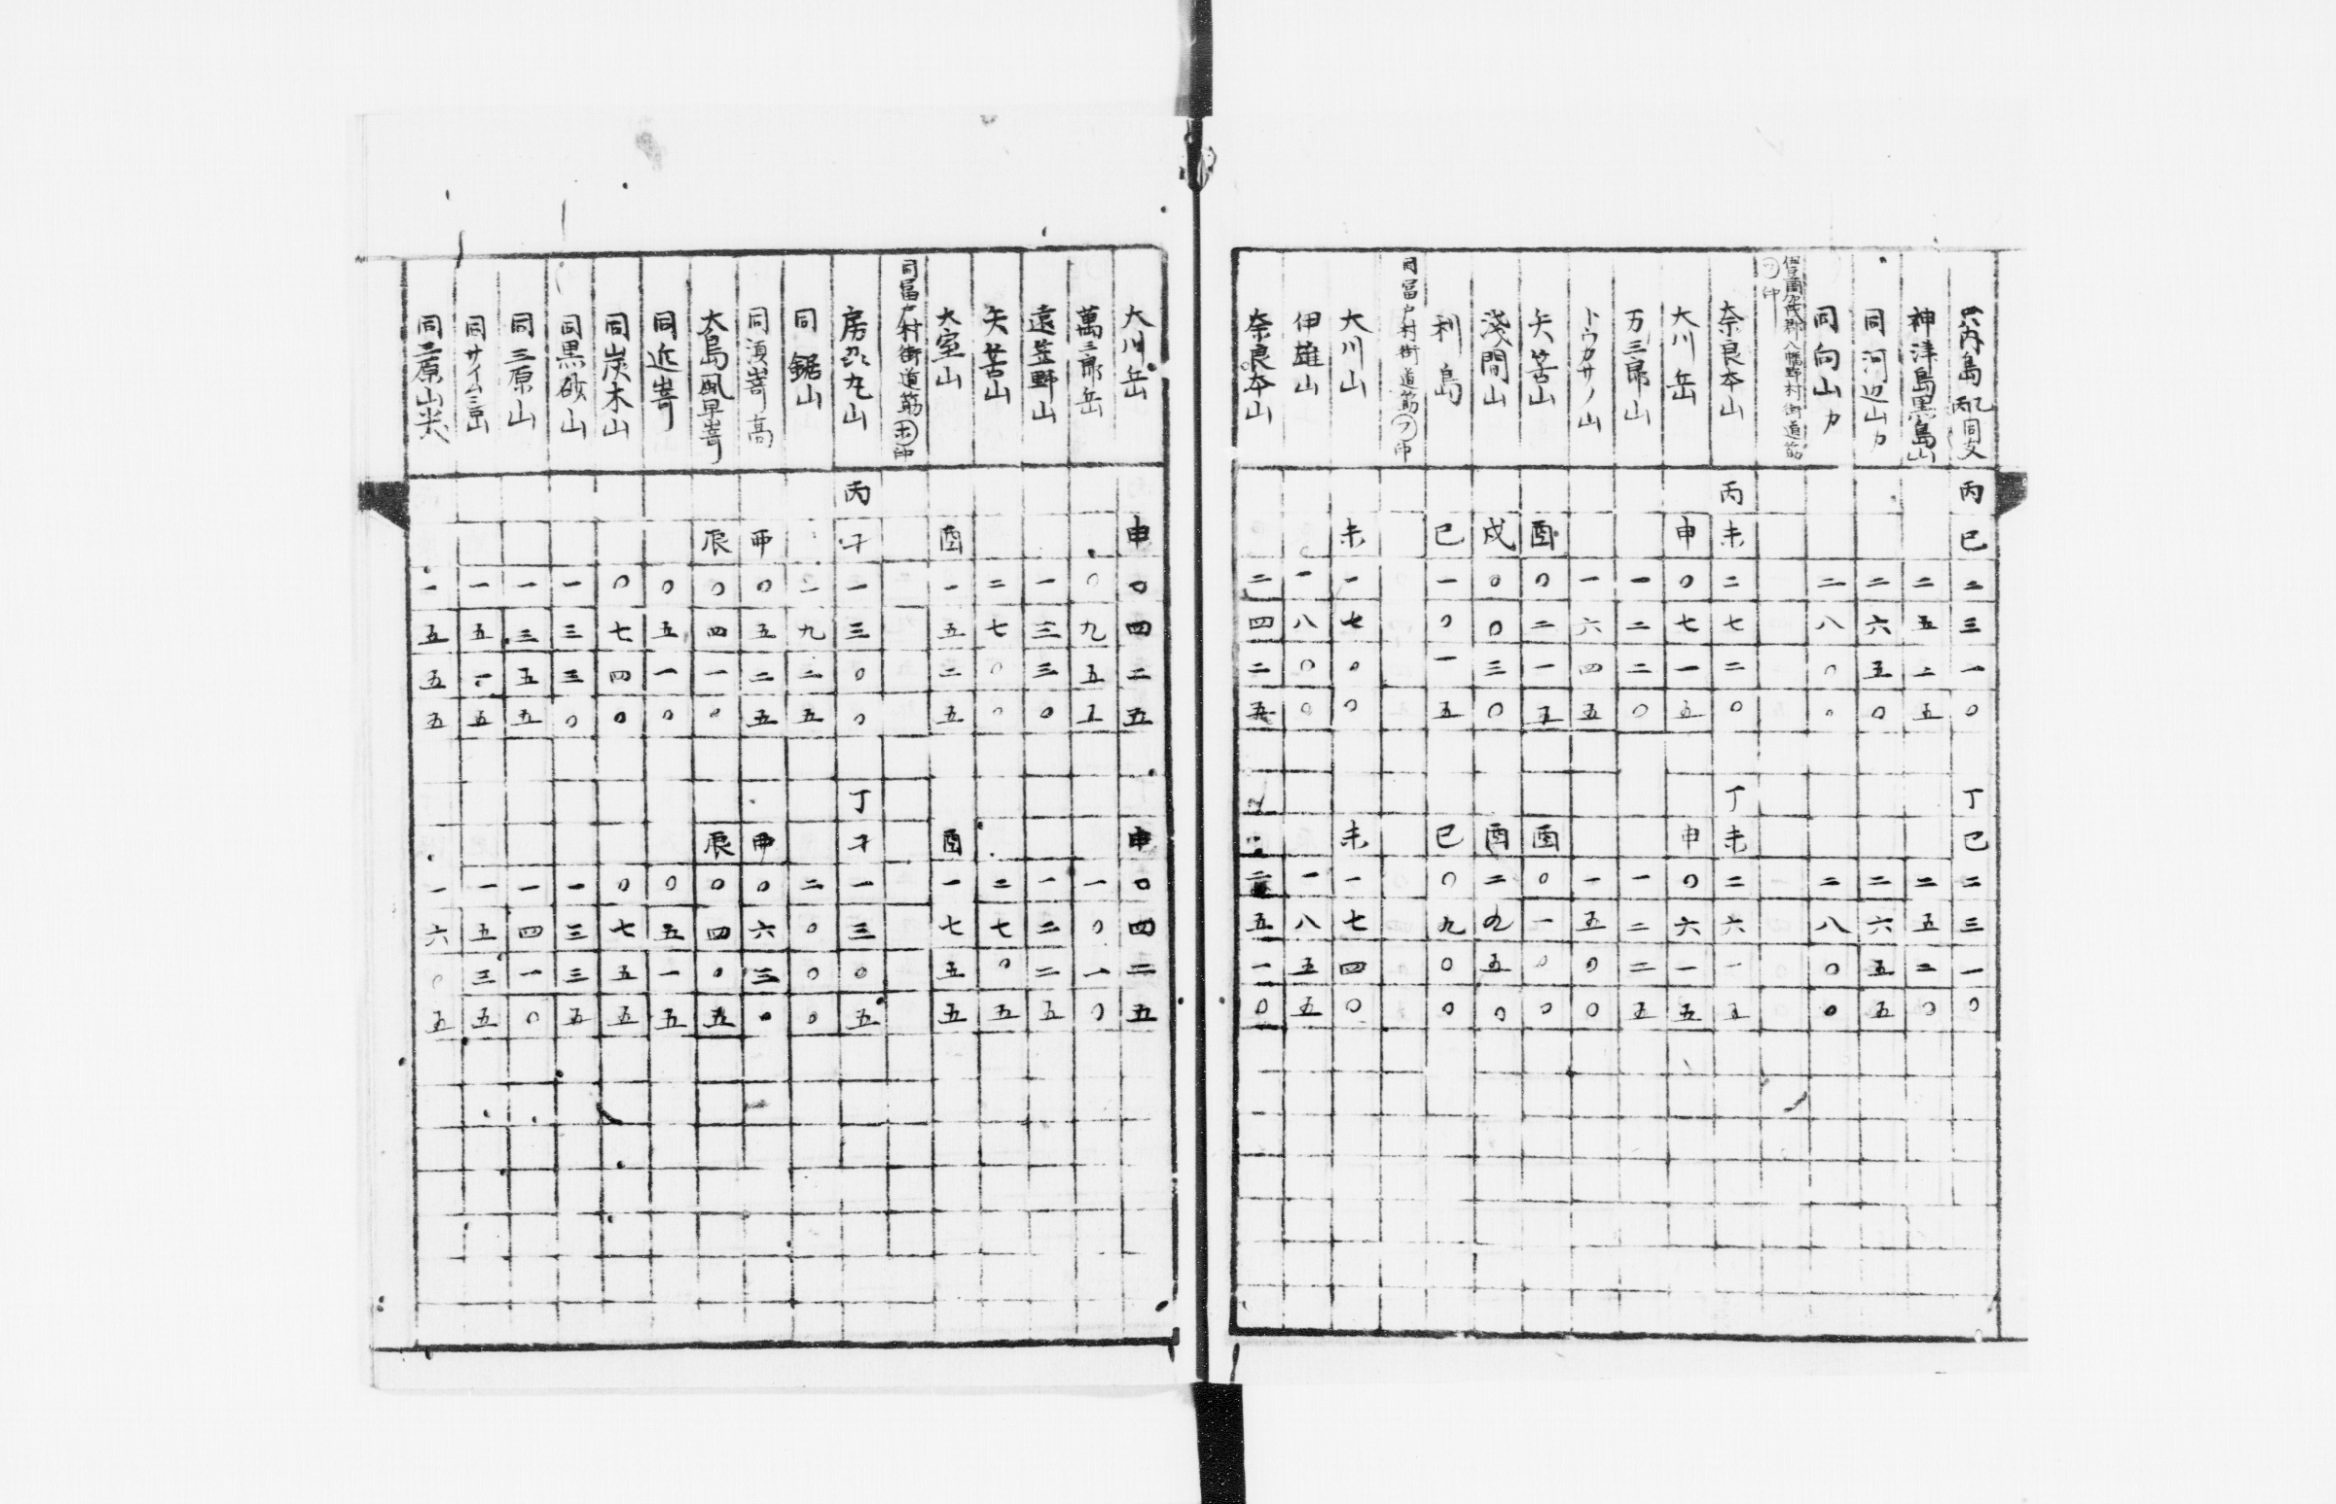 只内島 丙丁同支 丙巳二三一〇 丁巳二三一〇
神津島黒島山 二五二五 二五二〇
同河辺山カ 二六五〇 二六五五
同向山カ 二八〇〇 二八〇〇
豆州賀茂郡八幡野村街道筋 印
奈良本山 丙未二七二〇 丁未二六一五
大川岳 申〇七一五 申〇六一五
万三郎山 一二二〇 一二二五
トウカサノ山 一六四五 一五〇〇
矢筈山 酉〇二一五 酉〇一〇〇
淺間山 戌〇〇三〇 酉二九五〇
利島 巳一〇一五 巳〇九〇〇
同冨戸村街道筋 フ印
大川山 未一七〇〇 未一七四〇
伊雄山 一八〇〇 一八五五
奈良本山 二四二五 二五一〇
大川岳 申〇四二五 申〇四二五
萬三郎岳 〇九五五 一〇一〇
遠笠野山 一三三〇 一二二五
矢筈山 二七〇〇 二七〇五
大室山 酉一五二五 酉一七五五
同冨戸村街道筋 ホ印
房州丸山 丙子一三〇〇 丁子一三〇五
同鋸山 二九二五 二〇〇〇
同須嵜高 甲〇五二五 甲〇六三〇
大島風早嵜 辰〇四一〇 辰〇四〇五
同近嵜 〇五一〇 〇五一五
同炭木山 〇七四〇 〇七五五
同黒砂山 一三三〇 一三三五
同三原山 一三五五 一四一〇
同サイム三岳 一五一五 一五三五
同三原山 一五五五 一六〇五